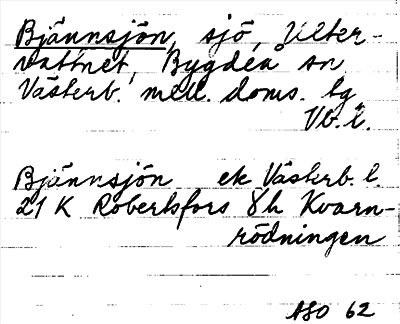 Bjännsjön, sjö, Ulter-
vattnet, Bygdeå sn
Västerb. mell. doms. tg
Vb. l.
Bjännsjön ek Västerb. l.
21 K Robertsfors 8h Kvarn-
rödningen
ASO 62